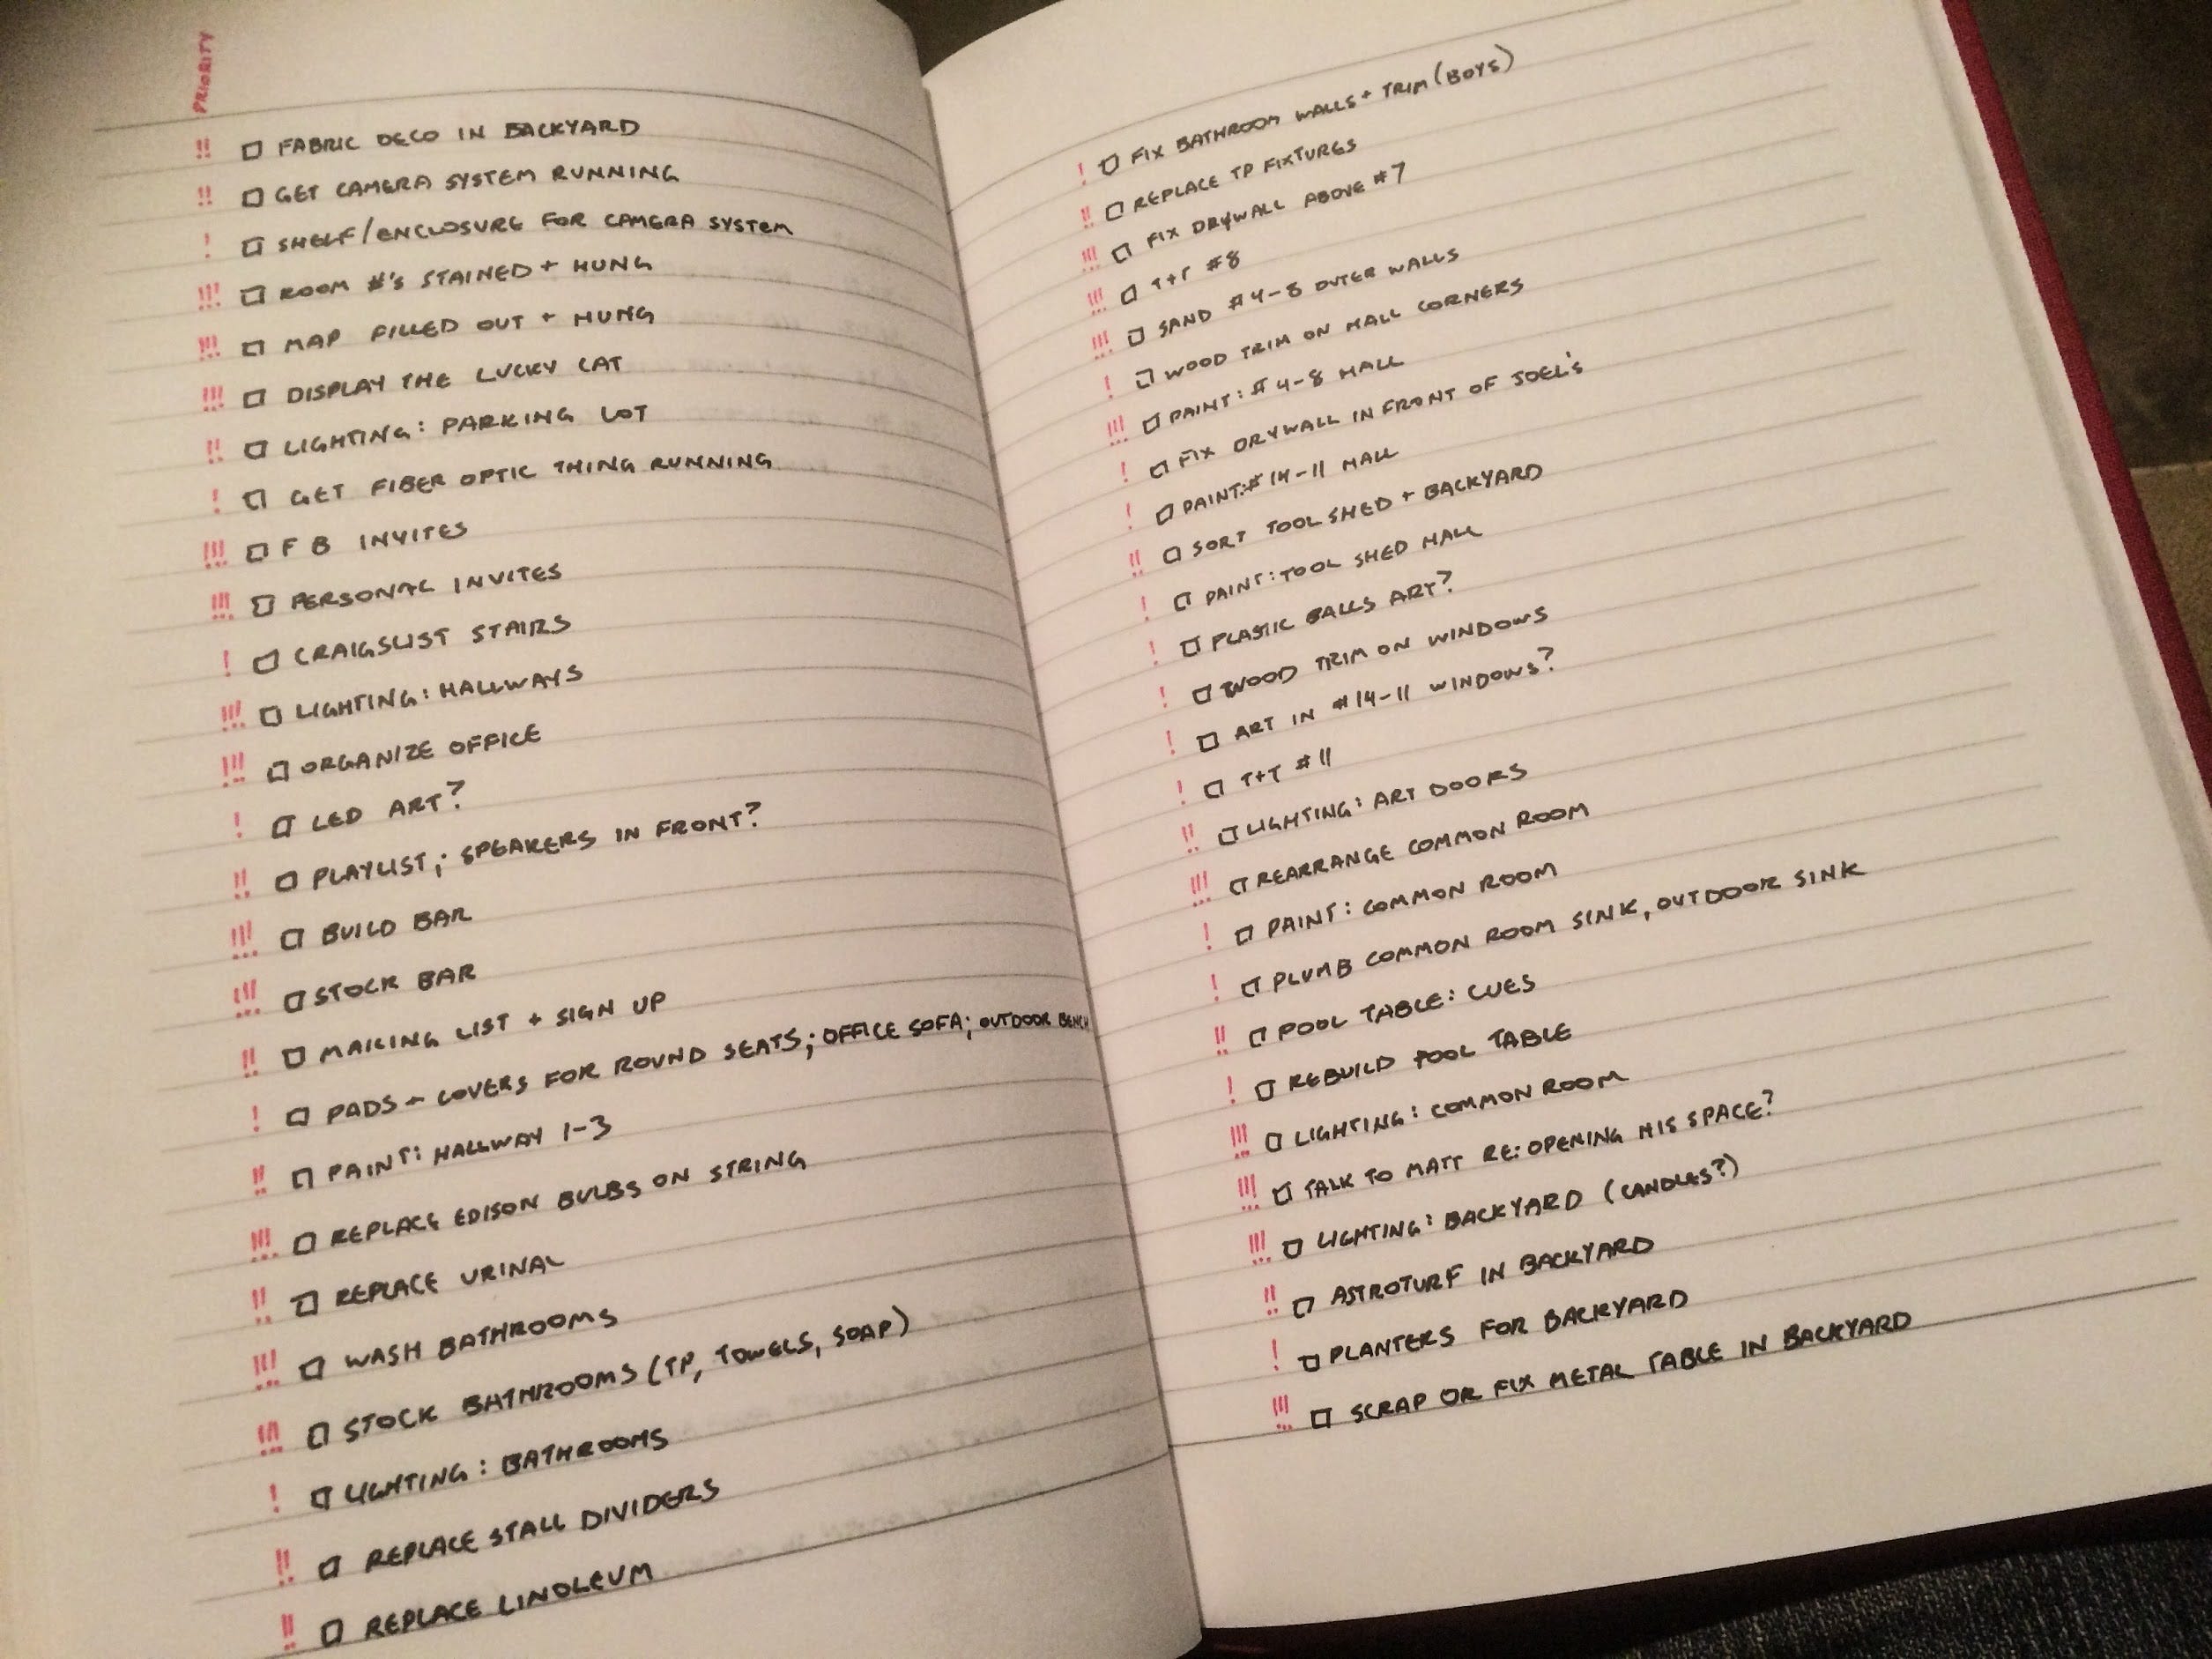 PRIORITY
!! □ FABRIC DECO IN BACKYARD
!! □ GET CAMERA SYSTEM RUNNING
! □ SHELF/ENCLOSURE FOR CAMERA SYSTEM
!!! □ ROOM #'S STAINED + HUNG
!!! □ MAP FILLED OUT + HUNG
!!! □ DISPLAY THE LUCKY CAT
!! □ LIGHTING: PARKING LOT
! □ GET FIBER OPTIC THING RUNNING
!!! □ FB INVITES
!!! □ PERSONAL INVITES
! □ CRAIGSLIST STAIRS
!!! □ LIGHTING: HALLWAYS
!!! □ ORGANIZE OFFICE
! □ LED ART?
!! □ PLAYLIST; SPEAKERS IN FRONT?
!!! □ BUILD BAR
!!! □ STOCK BAR
!! □ MAILING LIST + SIGN UP
! □ PADS + COVERS FOR ROUND SEATS; OFFICE SOFA; OUTDOOR BENCH
!! □ PAINT: HALLWAY 1-3
!!! □ REPLACE EDISON BULBS ON STRING
!! □ REPLACE URINAL
!!! □ WASH BATHROOMS
!!! □ STOCK BATHROOMS (TP, TOWELS, SOAP)
! □ LIGHTING: BATHROOMS
!! □ REPLACE STALL DIVIDERS
!! □ REPLACE LINOLEUM
! □ FIX BATHROOM WALLS + TRIM (BOYS)
!! □ REPLACE TP FIXTURES
!!! □ FIX DRYWALL ABOVE #7
!!! □ T+T #8
!!! □ SAND #4-8 OUTER WALLS
! □ WOOD TRIM ON HALL CORNERS
!!! □ PAINT: #4-8 HALL
! □ FIX DRYWALL IN FRONT OF JOEL'S
! □ PAINT: #14-11 HALL
!! □ SORT TOOL SHED + BACKYARD
! □ PAINT: TOOL SHED HALL
! □ PLASTIC BALLS ART?
! □ WOOD TRIM ON WINDOWS
! □ ART IN #14-11 WINDOWS?
! □ T+T #11
!! □ LIGHTING: ART DOORS
!!! □ REARRANGE COMMON ROOM
! □ PAINT: COMMON ROOM
! □ PLUMB COMMON ROOM SINK, OUTDOOR SINK
!! □ POOL TABLE: CUES
! □ REBUILD POOL TABLE
!!! □ LIGHTING: COMMON ROOM
!!! □ TALK TO MATT RE: OPENING HIS SPACE?
!!! □ LIGHTING: BACKYARD (CANDLES?)
!! □ ASTROTURF IN BACKYARD
! □ PLANTERS FOR BACKYARD
!!! □ SCRAP OR FIX METAL TABLE IN BACKYARD